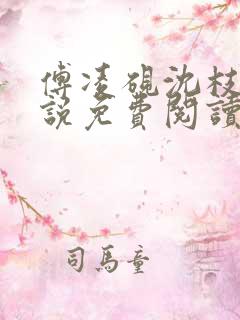 傅凌硯沈枝
說免費閱讀
司馬童